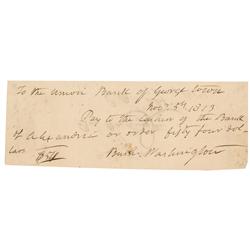 To the Union Bank of George Town
Nov. 3d, 1813
Pay to the cashier of the Bank
of Alexandria or order fifty four dol
lars $54 Bush. Washington